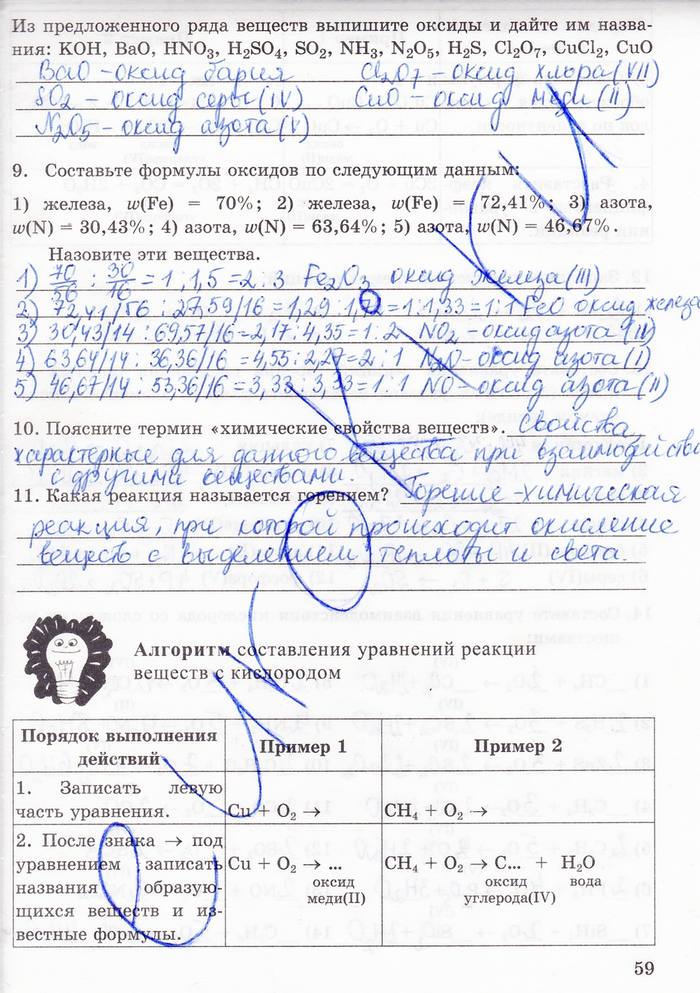 Из предложенного ряда веществ выпишите оксиды и дайте им назва-
ния: KOH, BaO, HNO₃, H₂SO₄, SO₂, NH₃, N₂O₅, H₂S, Cl₂O₇, CuCl₂, CuO
BaO – оксид бария Cl₂O7 – оксид хлора (VII)
SO₂ – оксид серы (IV) CuO – оксид меди (II)
N₂O5 – оксид азота (V)
9. Составьте формулы оксидов по следующим данным:
1) железа, w(Fe) = 70%; 2) железа, w(Fe) = 72,41%; 3) азота,
w(N) = 30,43%; 4) азота, w(N) = 63,64%; 5) азота, w(N) = 46,67%.
Назовите эти вещества.
1) 70/56 : 30/16 = 1 : 1,5 = 2 : 3 Fe₂O₃ оксид железа (III)
2) 72,41/56 : 27,59/16 = 1,29 : 1,72 = 1 : 1,33 = 1 : 1 FeO оксид железа
3) 30,43/14 : 69,57/16 = 2,17 : 4,35 = 1 : 2 NO₂ – оксид азота (IV)
4) 63,64/14 : 36,36/16 = 4,55 : 2,27 = 2 : 1 N₂O – оксид азота (I)
5) 46,67/14 : 53,36/16 = 3,33 : 3,33 = 1 : 1 NO – оксид азота (II)
10. Поясните термин «химические свойства веществ». Свойства,
характерные для данного вещества при взаимодействи
с другими веществами.
11. Какая реакция называется горением? Горение – химическая
реакция, при которой происходит окисление
веществ с выделением теплоты и света.
Алгоритм составления уравнений реакции
веществ с кислородом
Порядок выполнения Пример 1 Пример 2
действий
1. Записать левую
часть уравнения. Cu + O₂ → CH₄ + O₂ →
2. После знака → под
уравнением записать Cu + O₂ → ... CH₄ + O₂ → C... + H₂O
названия образую- оксид оксид вода
щихся веществ и из- меди(II) углерода(IV)
вестные формулы.
59